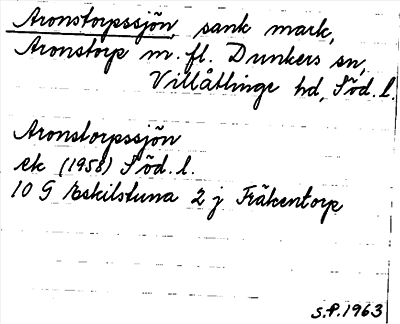 Aronstorpssjön, sank mark,
Aronstorp m. fl. Dunkers sn,
Villåttinge hd, Söd. l.
Aronstorpssjön
ek (1958) Söd. l.
10 G Eskilstuna 2 j Fräkentorp
S.P. 1963